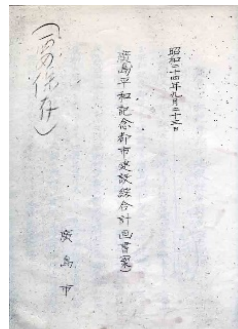 昭和二十四年九月二十二日
廣島平和記念都市建設綜合計画書(案)
廣島市